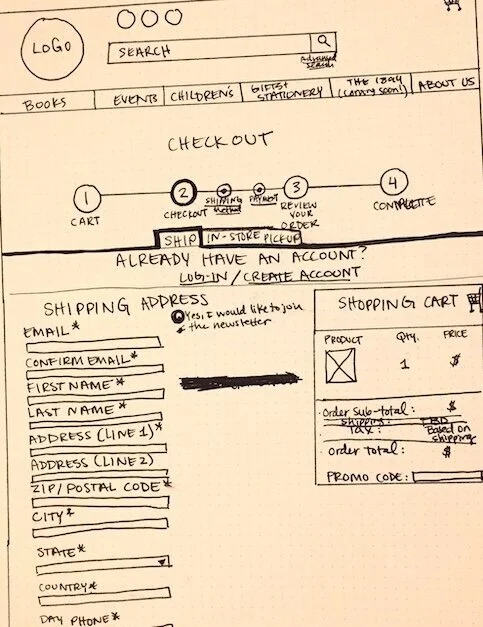 LOGO
SEARCH
Advanced search
BOOKS
EVENTS
CHILDREN'S
GIFTS + STATIONERY
THE 1804 (coming soon!)
ABOUT US
CHECKOUT
1
2
3
4
CART
CHECKOUT
SHIPPING METHOD
PAYMENT
REVIEW YOUR ORDER
COMPLETE
SHIP
IN-STORE PICKUP
ALREADY HAVE AN ACCOUNT?
LOG-IN / CREATE ACCOUNT
SHIPPING ADDRESS
EMAIL*
Yes, I would like to join
the newsletter
CONFIRM EMAIL*
FIRST NAME*
LAST NAME*
ADDRESS (LINE 1)*
ADDRESS (LINE 2)
ZIP/POSTAL CODE*
CITY*
STATE*
COUNTRY*
DAY PHONE*
SHOPPING CART
PRODUCT QTY. PRICE
1 $
Order Sub-total: $
Shipping: TBD
Tax: Based on shipping
Order total: $
PROMO CODE: